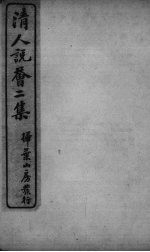 清人説薈二集
掃葉山房發行